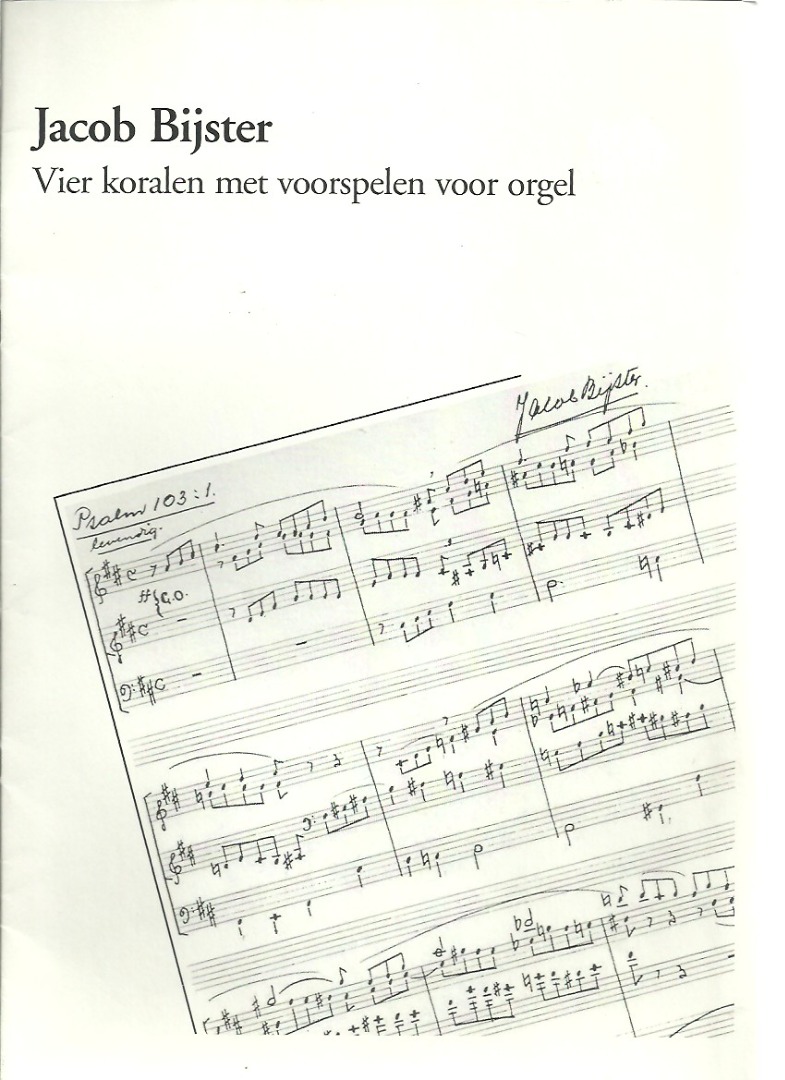 Jacob Bijster
Vier koralen met voorspelen voor orgel
Jacob Bijster.
Psalm 103:1.
levendig.
ff G.O.